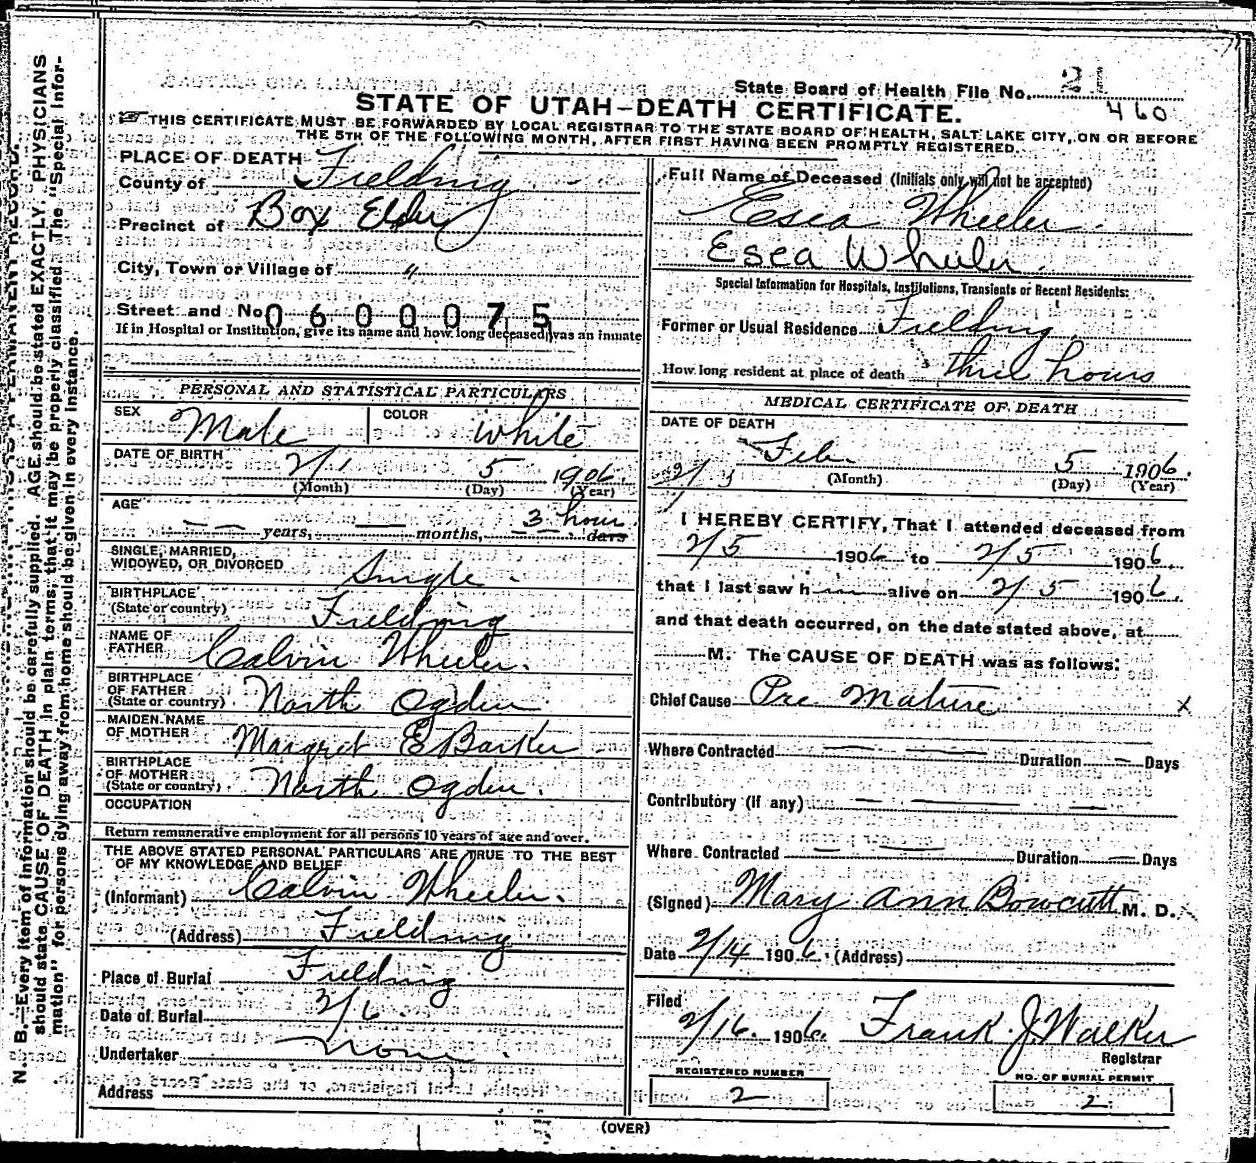 State Board of Health File No. 21
460
STATE OF UTAH—DEATH CERTIFICATE.
THIS CERTIFICATE MUST BE FORWARDED BY LOCAL REGISTRAR TO THE STATE BOARD OF HEALTH, SALT LAKE CITY, ON OR BEFORE
THE 5TH OF THE FOLLOWING MONTH, AFTER FIRST HAVING BEEN PROMPTLY REGISTERED.
N. B.—Every item of information should be carefully supplied. AGE should be stated EXACTLY. PHYSICIANS
should state CAUSE OF DEATH in plain terms, that it may be properly classified. The "Special Infor-
mation" for persons dying away from home should be given in every instance.
PLACE OF DEATH
County of Fielding
Precinct of Box Elder
City, Town or Village of "
Street and No. 0600075
If in Hospital or Institution, give its name and how long deceased was an inmate
PERSONAL AND STATISTICAL PARTICULARS
SEX Male COLOR White
DATE OF BIRTH 2/ 5 1906
(Month) (Day) (Year)
AGE — — years, — months, 3 hour days
SINGLE, MARRIED,
WIDOWED, OR DIVORCED Single.
BIRTHPLACE
(State or country) Fielding
NAME OF
FATHER Calvin Wheeler.
BIRTHPLACE
OF FATHER
(State or country) North Ogden
MAIDEN NAME
OF MOTHER Margret E Barker
BIRTHPLACE
OF MOTHER
(State or country) North Ogden.
OCCUPATION
Return remunerative employment for all persons 10 years of age and over.
THE ABOVE STATED PERSONAL PARTICULARS ARE TRUE TO THE BEST
OF MY KNOWLEDGE AND BELIEF
(Informant) Calvin Wheeler.
(Address) Fielding.
Place of Burial Fielding
Date of Burial 2/6
Undertaker None.
Address
Full Name of Deceased (Initials only will not be accepted)
Esea Wheeler.
Esea Wheeler.
Special Information for Hospitals, Institutions, Transients or Recent Residents:
Former or Usual Residence Fielding
How long resident at place of death 3 three hours
MEDICAL CERTIFICATE OF DEATH
DATE OF DEATH
2/5 Feb 5 1906.
(Month) (Day) (Year)
I HEREBY CERTIFY, That I attended deceased from
2/5 1906 to 2/5 1906
that I last saw him alive on 2/5 1906.
and that death occurred, on the date stated above, at
M. The CAUSE OF DEATH was as follows:
Chief Cause Pre Mature x
Where Contracted — — Duration — Days
Contributory (if any) — — — —
Where Contracted — — Duration — Days
(Signed) Mary Ann Bowcutt M. D.
Date 2/14 1906. (Address)
Filed
2/16. 1906. Frank J Walker
Registrar
REGISTERED NUMBER NO. OF BURIAL PERMIT
2 2
(OVER)